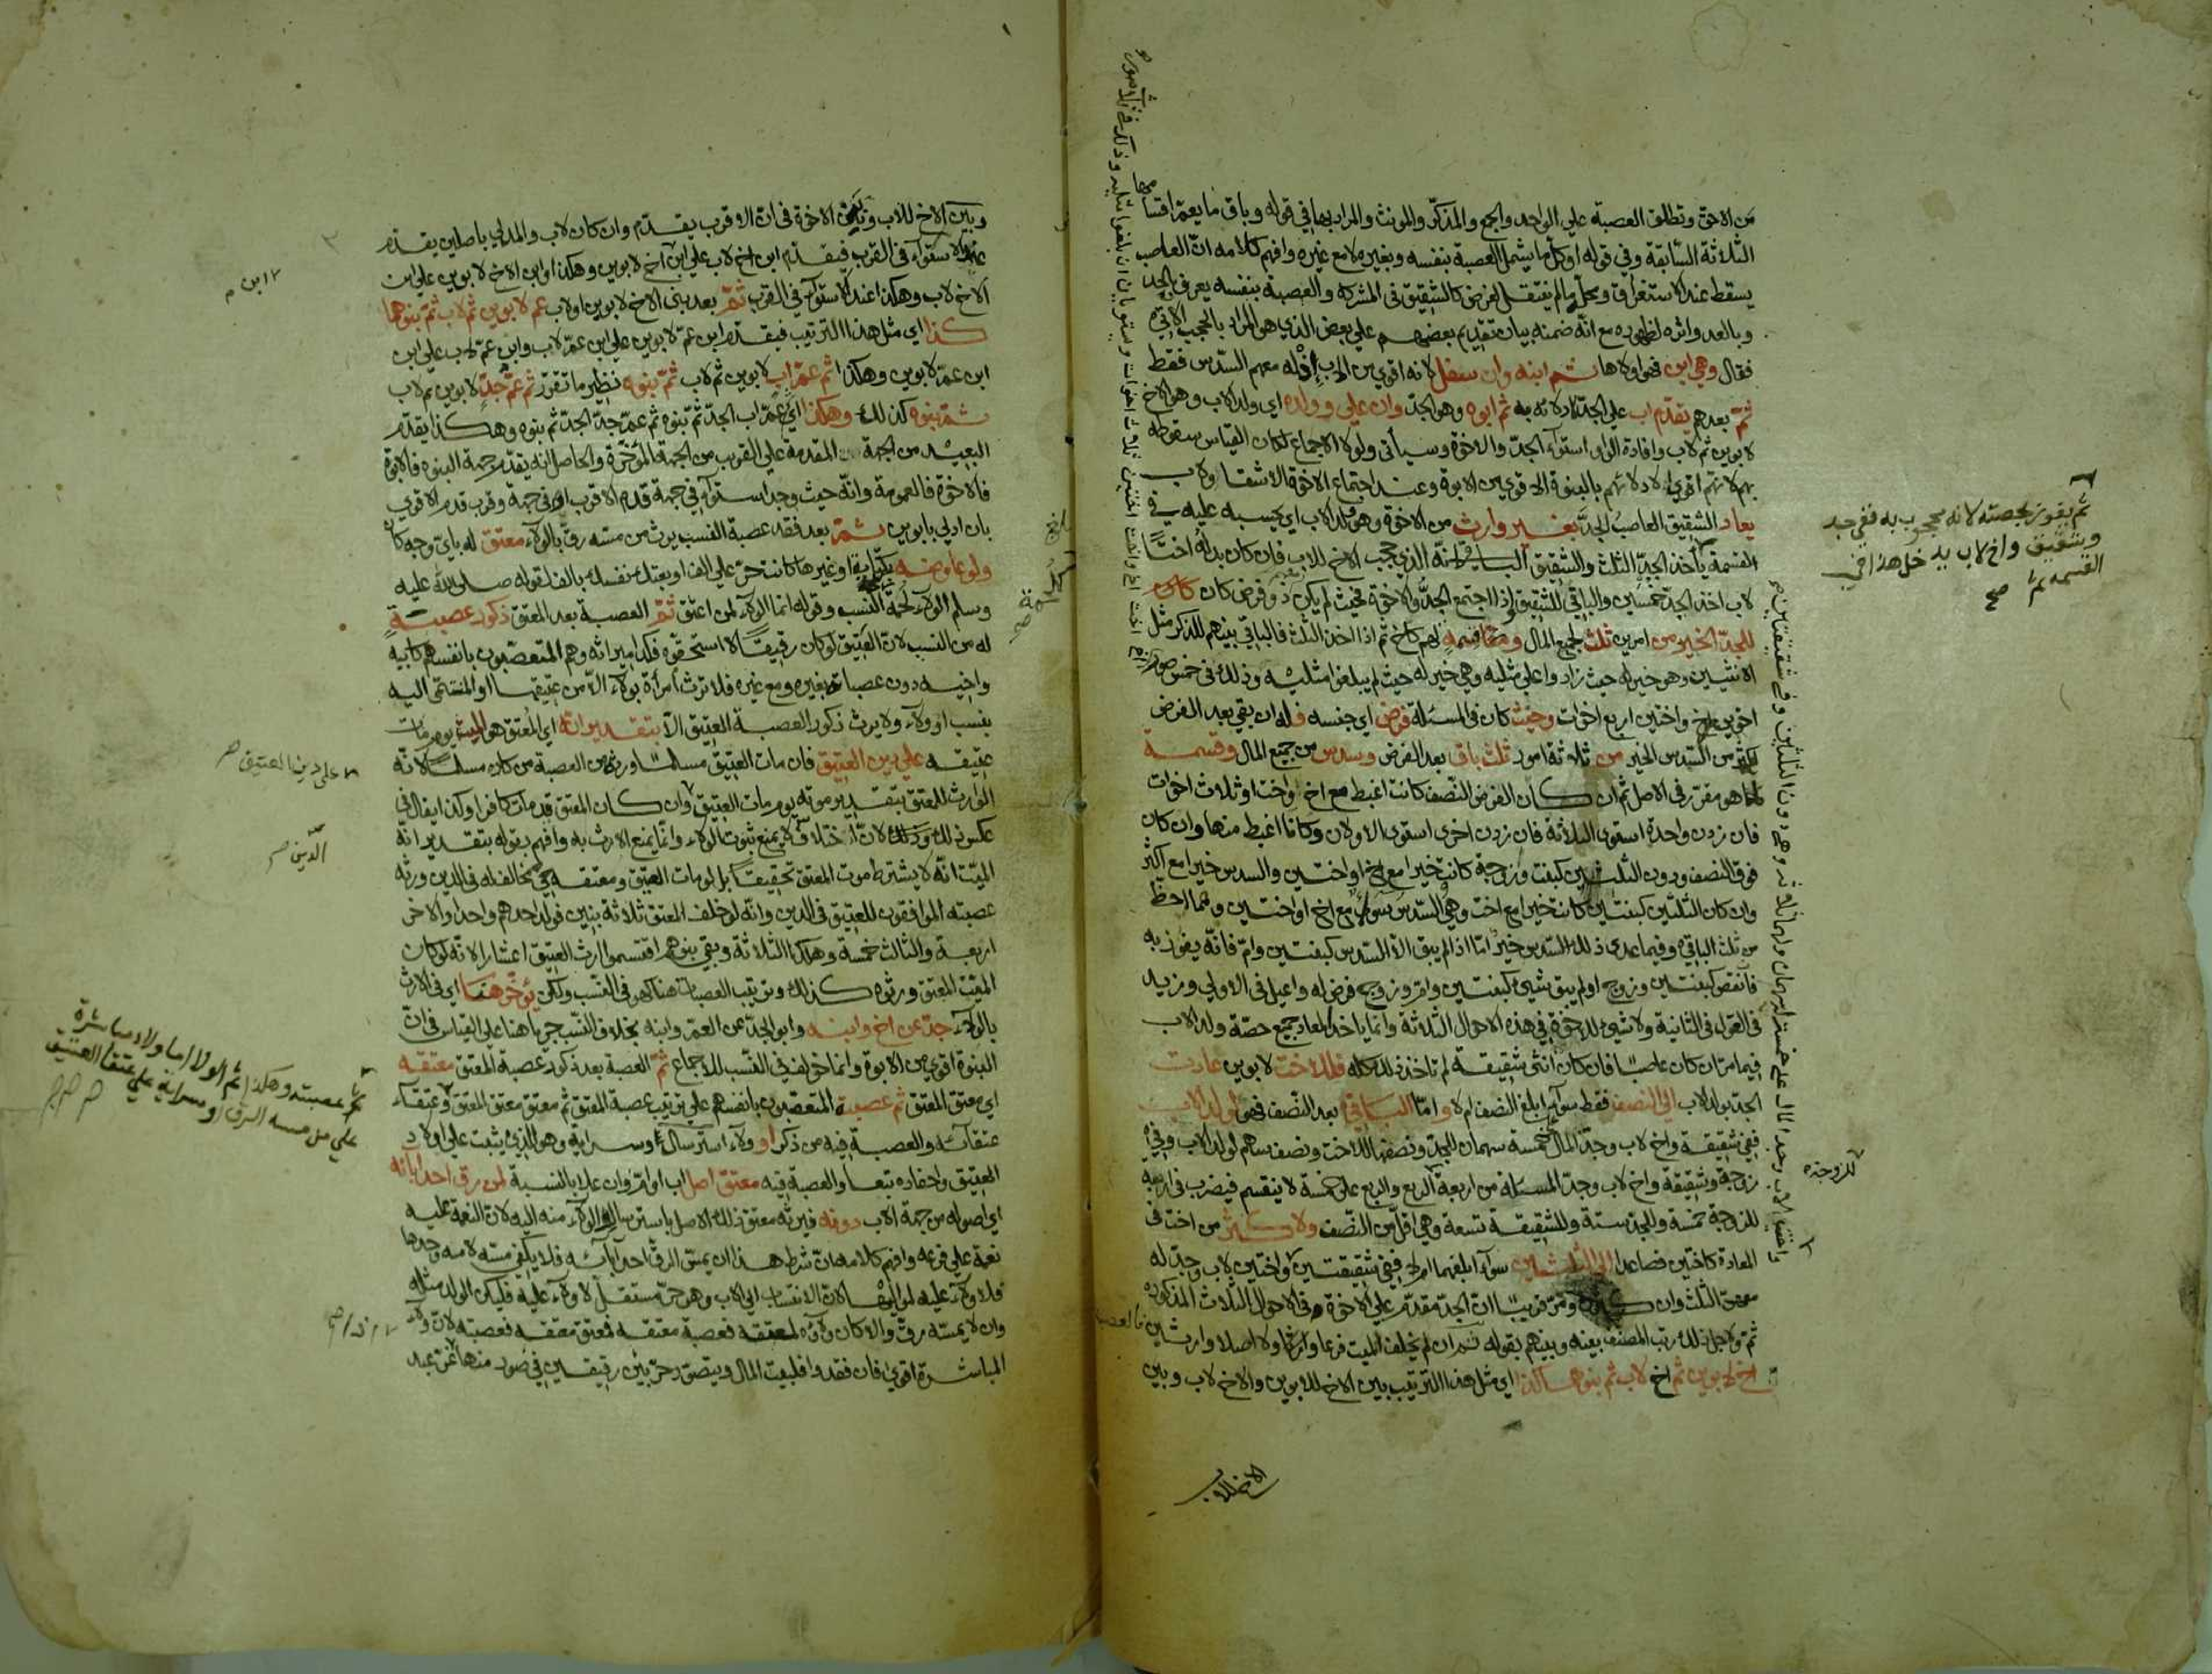 من الاحق وتطلق العصبة علي الواحد والجمع والمذكر والمونث والمراد بها في قوله وباق ما يعم اقسامها
الثلاثة السابقة وفي قوله او كل ما يشمل العصبة بنفسه وبغيره لا مع غيره وافهم كلامه ان العاصب
يسقط عند الاستغراق ومحل ما لم ينتقل لفرض كالشقيق في المشركة والعصبة بنفسه يعرف بالحد
وبالعد واثره لظهوره مع انه ضمنه بيان تقديم بعضهم علي بعض الذي هو المراد بالحجب الاتي
فقال وهي ابن فهو اولاها ثم ابنه وان سفل لانه اقوي من الاب اذ له معهم السدس فقط
ثم بعدهم يقدم اب علي الجد لادلائه به ثم ابوه وهو الجد وان علي وولده اي ولد الاب وهو الاخ
لابوين ثم لاب وافادة الواو استوآء الجد والاخوة وسيأتي ولولا الاجماع لكان القياس سقوطه
بهم لانهم اقوي لادلائهم بالبنوة الاقوي من الابوة وعند اجتماع الاخوة الاشقا ولاب
يعاد الشقيق العاصب الجد بغير وارث من الاخوة وهو ولد الاب اي يحسبه عليه في
القسمة يأخذ الجد الثلث والشقيق الباقي لانه الذي حجب الاخ للاب فان كان بدله اختا
لاب اخذ الجد خمسين والباقي للشقيق واذا اجتمع الجد والاخوة فحيث لم يكن ذو فرض كان
للجد الخير من امرين ثلث لجميع المال ومقاسمة لهم كاخ ثم اذا اخذ الثلث فالباقي بينهم للذكر مثل
الانثيين وهو خير له حيث زادوا علي مثليه وهي خير له حيث لم يبلغوا مثليه وذلك في خمس صور
اخوين اخ واختين اربع اخوات وحيث كان في المسئلة فرض اي جنسه فله ان بقي بعد الفرض
اكثر من السدس الخير من ثلاثة امور ثلث باق بعد الفرض وسدس من جميع المال وقسمة
كما هو مقرر في الاصل ثم ان كان الفرض النصف كانت اغبط مع اخ او اخت او ثلاث اخوات
فان زدن واحدة استوى الثلاثة فان زدن اخرى استوى الاولان وكانا اغبط منها وان كان
فوق النصف ودون الثلثين كبنت وزوجة كانت خيرا مع اخ او اختين والسدس خيرا مع اكثر
وان كان الثلثين كبنتين كانت خيرا مع اخت وهي والسدس سوآء مع اخ او اختين وهما احظ
من ثلث الباقي وفيما عدى ذلك السدس خير اما اذا لم يبق الا السدس كبنتين وام فانه يفوز به
فان نقص كبنتين وزوج او لم يبق شيئ كبنتين وام وزوج فرض له واعيل في الاولي وزيد
في العول في الثانية ولا شيئ للاخوة في هذه الاحوال الثلاثة وانما ياخذ المعاد جميع حصة ولد الاب
فيما مر ان كان عاصبا فان كان انثى شقيقة لم تاخذ ذلك كله فللاخت لابوين عادت
الجد بولد الاب الي النصف فقط سوآء ابلغ النصف ام لا واما الباقي بعد النصف فهو لولد الاب
ففي شقيقة واخ لاب وجد المال خمسة سهمان للجد ونصفها للاخت ونصف سهم لولد الاب وفي
زوجة وشقيقة واخ لاب وجد المسئلة من اربعة الربع والربع علي خمسة لا ينقسم فيضرب في اربعة
للزوجة خمسة وللجد ستة وللشقيقة تسعة وهي اقل من النصف ولاكثر من اخت في
المعادة كاختين فصاعدا الي الثلثين سوآء ابلغهما ام لا ففي شقيقتين واختين لاب وجد له
الثلث وان ومر قريبا ان الجد مقدم علي الاخوة في الاحوال الثلاث المذكورة
ثم ولاجل ذلك رتب المصنف بينه وبينهم بقوله ثم ان لم يخلف الميت فرعا وارثا ولا اصلا وارثين
اخ لابوين ثم اخ لاب ثم بنوهما كذا اي مثل هذا الترتيب بين الاخ للابوين والاخ لاب وبين
الاخ للاب
ثم يفوز بحصته لانه محجوب به ففي جد
وشقيق واخ لاب يدخل هذا في
القسمة ثم صح
للزوجة
وبين الاخ للاب وبين الاخوة في ان الاقرب يقدم وان كان لاب والمدلي باصلين يقدم
عند الاستوآء في القرب فيقدم ابن اخ لاب علي ابن ابن اخ لابوين وهكذا وابن الاخ لابوين علي ابن
الاخ لاب وهكذا عند الاستوآء في القرب ثم بعد بني الاخ لابوين او لاب عم لابوين ثم لاب ثم بنوهما
كذا اي مثل هذا الترتيب فيقدم ابن عم لابوين علي ابن عم لاب وابن عم لاب علي ابن
ابن عم لابوين وهكذا ثم عم اب لابوين ثم لاب ثم بنوه نظير ما تقرر ثم عم جد لابوين ثم لاب
ثم بنوه كذلك وهكذا اي عم اب الجد ثم بنوه ثم عم جد الجد ثم بنوه وهكذا يقدم
البعيد من الجهة المقدمة علي القريب من الجهة المؤخرة والحاصل انه يقدم جهة البنوة فالابوة
فالاخوة فالعمومة وانه حيث وجد استوآء في جهة قدم الاقرب او في جهة وقرب قدم الاقوي
بان ادلي بابوين ثم بعد فقد عصبة النسب يرث من مسه رق بالولآء معتق له باي وجه كان
ولو عاوضه بكتابة او غيرها كانت حر علي الف او بعتك نفسك بالف لقوله صلى الله عليه
وسلم الولآء لحمة كلحمة النسب وقوله انما الولآء لمن اعتق ثم العصبة بعد المعتق ذكور عصبة
له من النسب لان العتيق لو كان رقيقا لاستحقوه فكذا ميراثه وهم المتعصبون بانفسهم كابيه
واخيه دون عصباته بغيره ومع غيره فلا ترث امرأة بولآء الا من عتيقها او المنتمي اليه
بنسب او ولآء ولا يرث ذكور العصبة العتيق الا بتقديرانه اي المعتق هو الميت يوم مات
عتيقه علي دين العتيق فان مات العتيق مسلما ورثه من العصبة من كان مسلما لانه
الوارث للمعتق بتقدير موته يوم مات العتيق وان كان المعتق قد مات كافرا وكذا يقال في
عكس ذلك وذلك لان اختلاف لا يمنع ثبوت الولاء وانما يمنع الارث به وافهم بقوله بتقدير انه
الميت انه لا يشترط موت المعتق تحقيقا بل لو مات العتيق ومعتقه حي مخالف له في الدين ورثه
عصبته الموافقون للعتيق في الدين وانه لو خلف المعتق ثلاثة بنين فولد احدهم واحدا والاخر
اربعة والثالث خمسة وهلك الثلاثة وبقي بنوهم اقتسموا ارث العتيق اعشارا لانه لو كان
الميت المعتق ورثوه كذلك وترتيب العصبات هنا كهو في النسب ولكن يؤخر هنا اي في الارث
بالولآء جد عن اخ وابنه وابو الجد عن العم وابنه بخلاف النسب جريا هنا علي القياس في ان
البنوة اقوي من الابوة وانما خولف في النسب للاجماع ثم العصبة بعد ذكور عصبة المعتق معتقه
اي معتق المعتق ثم عصبة المتعصبون بانفسهم علي ترتيب عصبة المعتق ثم معتق معتق المعتق وعتقاء
عتقآئه والعصبة فيه من ذكر او ولآء استرسال وسراية وهو الذي يثبت علي اولاد
العتيق واحفاده تبعا والعصبة فيه معتق اصل اب او ام وان علا بالنسبة لمن رق احد ابائه
اي اصوله من جهة الاب دونه فيرثه معتق ذلك الاصل باسترسال الولآء منه اليه لان النعمة عليه
نعمة علي فرعه وافهم كلامه ان شرط هذا ان يمس الرق احد آبآئه فلا يكفي مسه لامه وحدها
فلا ولآء عليه لمواليها لان الانتساب الي الاب وهو حر مستقل لا ولآء عليه فليكن الولد مثله
وان لا يمسه رق والا كان ولآؤه لمعتقه فعصبة معتقه فمعتق معتقه فعصبته لان ولآء
المباشرة اقوي فان فقدوا فلبيت المال ويتصور حر بين رقيقين في صور منها عن عبد
ابن
علي دين العتيق
الدين
ثم عصبته وهكذا ثم الولا اما ولا مباشرة
علي من مسه الرق او سراية علي عتقا العتيق